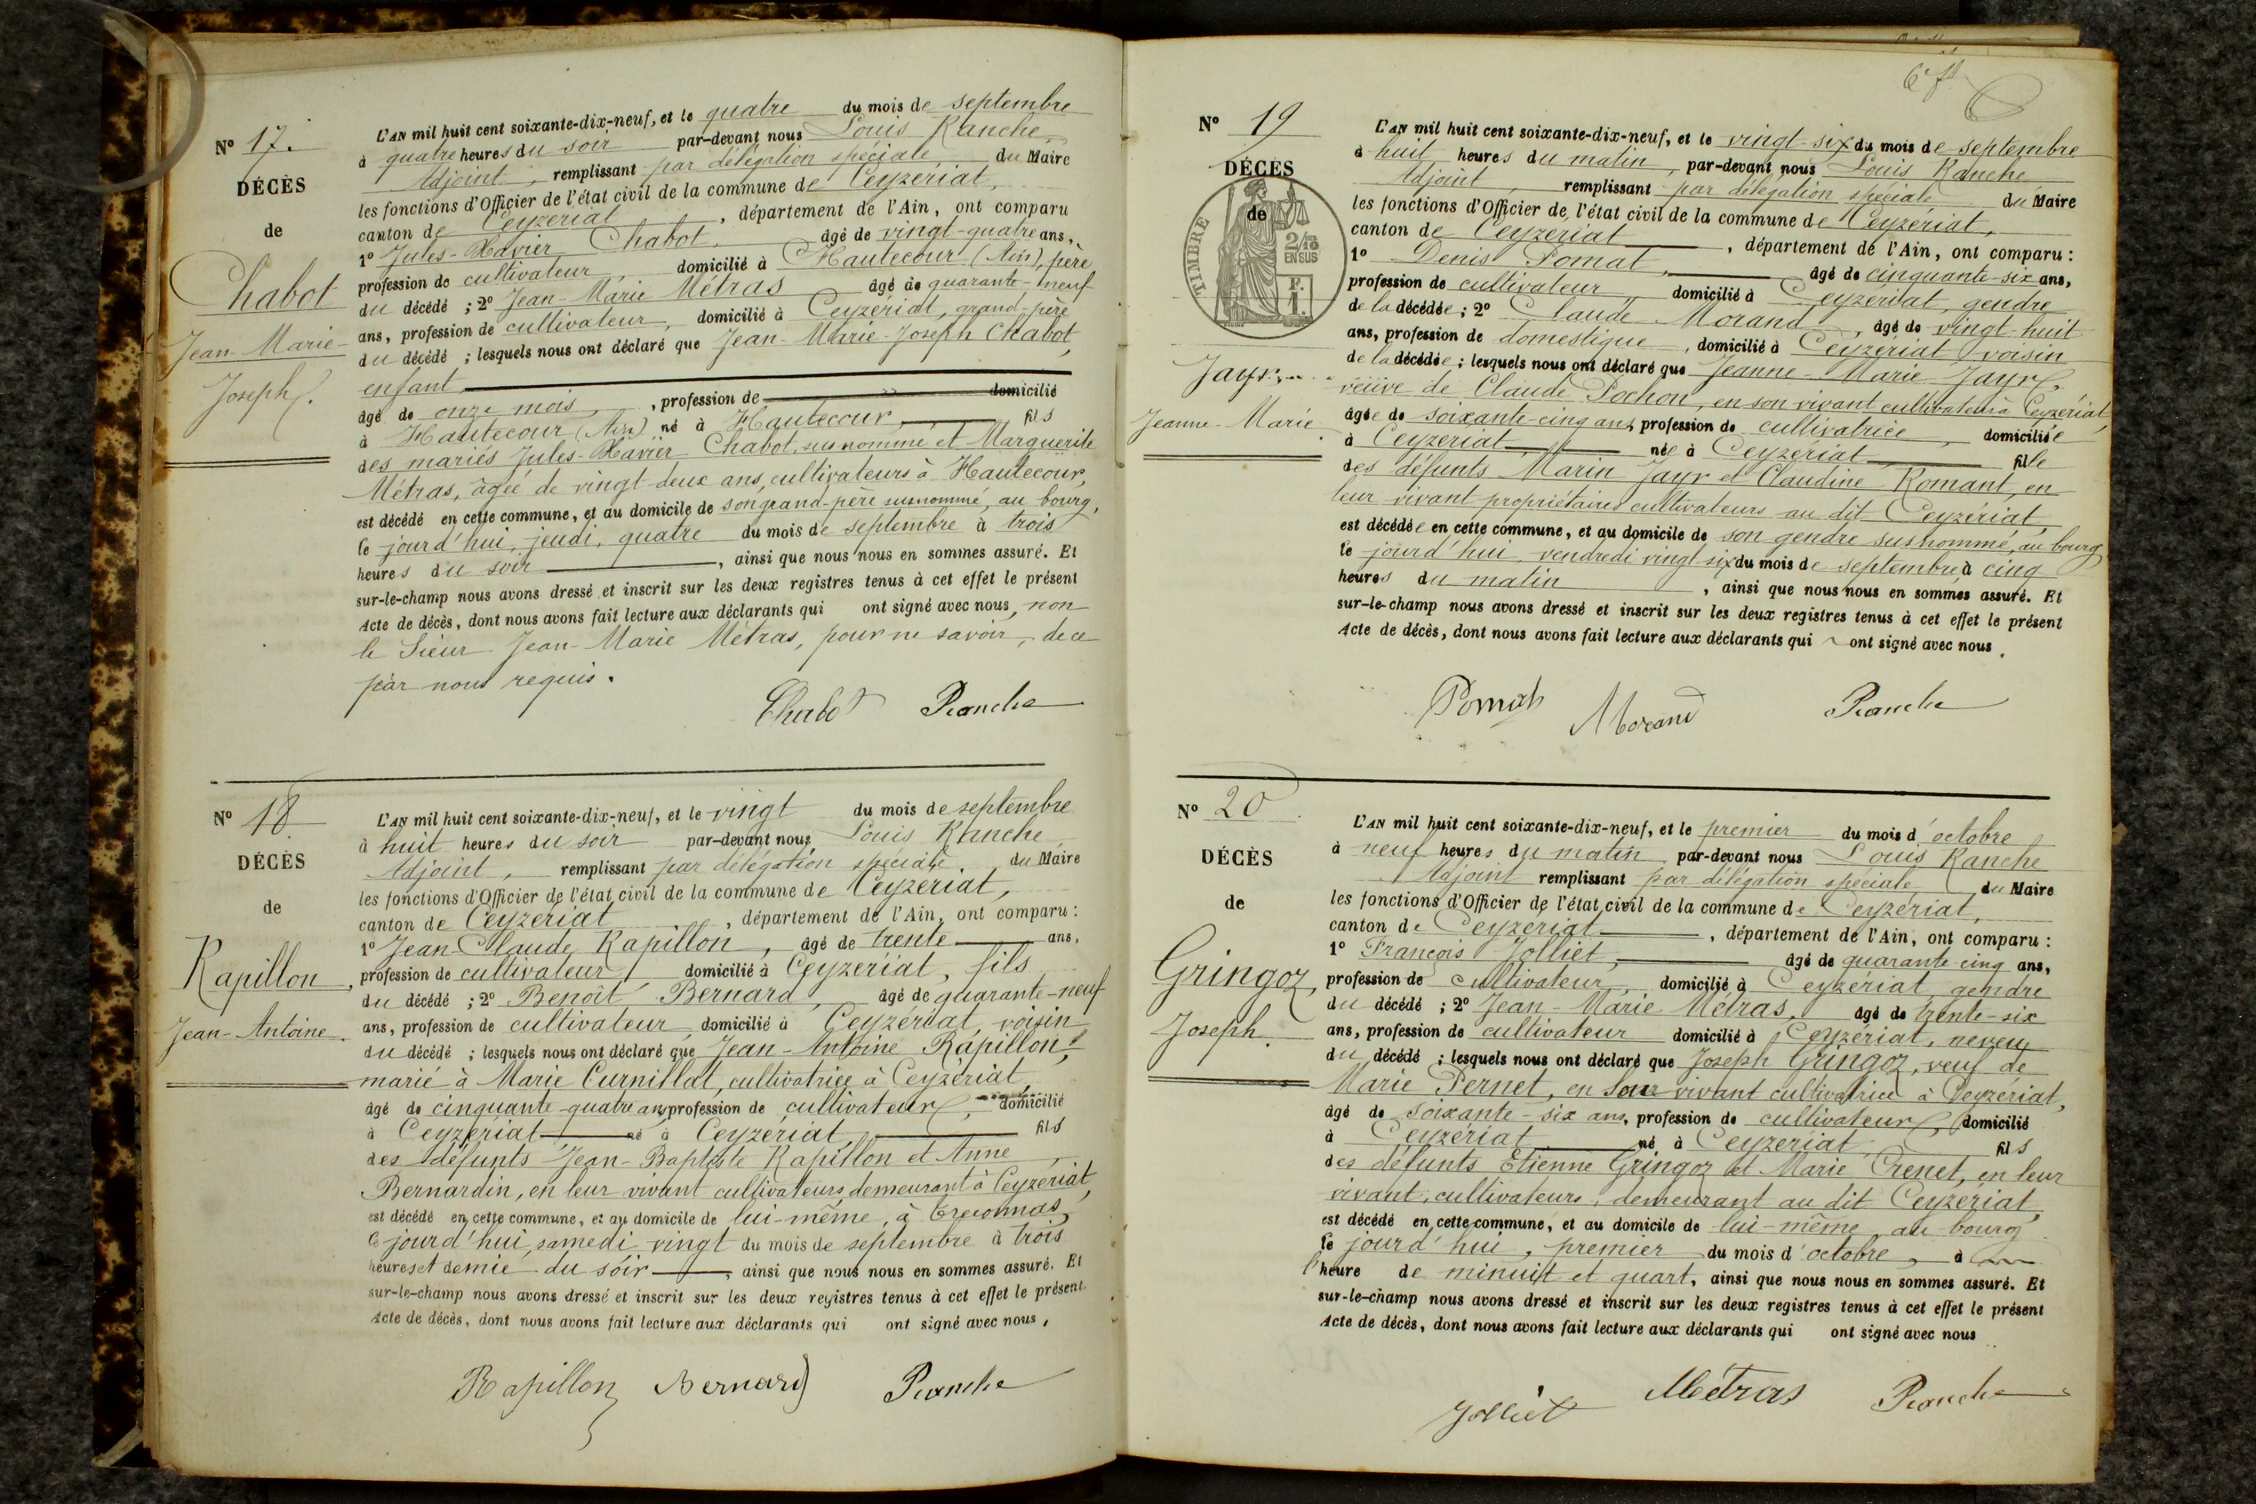 N° 17.
DÉCÈS
de
Chabot
Jean-Marie-
Joseph.
L'AN mil huit cent soixante-dix-neuf, et le quatre du mois de septembre
à quatre heures du soir par-devant nous Louis Ranche
Adjoint, remplissant par délégation spéciale, du Maire
les fonctions d'Officier de l'état civil de la commune de Ceyzeriat,
canton de Ceyzeriat, département de l'Ain, ont comparu
1° Jules-Xavier Chabot, âgé de vingt-quatre ans,
profession de cultivateur, domicilié à Hautecour (Ain), père
du décédé ; 2° Jean-Marie Métras âgé de quarante-neuf
ans, profession de cultivateur, domicilié à Ceyzériat, grand-père
du décédé ; lesquels nous ont déclaré que Jean-Marie-Joseph Chabot,
enfant
âgé de onze mois, profession de domicilié
à Hautecour (Ain) né à Hautecour, fils
des mariés Jules-Xavier Chabot, susnommé et Marguerite
Métras, âgée de vingt-deux ans, cultivateurs à Hautecour,
est décédé en cette commune, et au domicile de son grand-père susnommé, au bourg,
le jourd'hui, jeudi, quatre du mois de septembre à trois
heures du soir, ainsi que nous nous en sommes assuré. Et
sur-le-champ nous avons dressé et inscrit sur les deux registres tenus à cet effet le présent
Acte de décès, dont nous avons fait lecture aux déclarants qui ont signé avec nous, non
le Sieur Jean-Marie Métras, pour ne savoir, de ce
par nous requis.
Chabot Ranche
N° 18
DÉCÈS
de
Rapillon,
Jean-Antoine.
L'AN mil huit cent soixante-dix-neuf, et le vingt du mois de septembre
à huit heures du soir par-devant nous Louis Ranche
Adjoint, remplissant par délégation spéciale, du Maire
les fonctions d'Officier de l'état civil de la commune de Ceyzeriat,
canton de Ceyzeriat, département de l'Ain, ont comparu :
1° Jean-Claude Rapillon, âgé de trente ans,
profession de cultivateur, domicilié à Ceyzeriat, fils
du décédé ; 2° Benoît Bernard, âgé de quarante-neuf
ans, profession de cultivateur, domicilié à Ceyzériat, voisin
du décédé ; lesquels nous ont déclaré que Jean-Antoine Rapillon,
marié à Marie Curnillat, cultivatrice à Ceyzériat,
âgé de cinquante-quatre ans, profession de cultivateur, domicilié
à Ceyzeriat né à Ceyzériat, fils
des défunts Jean-Baptiste Rapillon et Anne
Bernardin, en leur vivant cultivateurs, demeurant à Ceyzériat,
est décédé en cette commune, et au domicile de lui-même, à
ce jourd'hui, samedi, vingt du mois de septembre à trois
heures et demie du soir, ainsi que nous nous en sommes assuré. Et
sur-le-champ nous avons dressé et inscrit sur les deux registres tenus à cet effet le présent
Acte de décès, dont nous avons fait lecture aux déclarants qui ont signé avec nous,
Rapillon Bernard Ranche
N° 19
DÉCÈS
de
TIMBRE
2/10 EN SUS
F. 1.
Jayr,
Jeanne-Marie.
L'AN mil huit cent soixante-dix-neuf, et le vingt-six du mois de septembre
à huit heures du matin, par-devant nous Louis Ranche
Adjoint, remplissant par délégation spéciale du Maire
les fonctions d'Officier de l'état civil de la commune de Ceyzériat,
canton de Ceyzeriat, département de l'Ain, ont comparu :
1° Denis Pomat, âgé de cinquante-six ans,
profession de cultivateur domicilié à Ceyzeriat, gendre
de la décédée ; 2° Claude Morand, âgé de vingt-huit
ans, profession de domestique, domicilié à Ceyzériat voisin
de la décédée ; lesquels nous ont déclaré que Jeanne-Marie Jayr,
veuve de Claude Pochon, en son vivant cultivateur à Ceyzériat,
âgée de soixante-cinq ans, profession de cultivatrice, domiciliée
à Ceyzeriat née à Ceyzériat fille
des défunts Marin Jayr et Claudine Romant, en
leur vivant propriétaires cultivateurs au dit Ceyzériat,
est décédée en cette commune, et au domicile de son gendre susnommé, au bourg
le jourd'hui vendredi vingt-six du mois de septembre à cinq
heures du matin, ainsi que nous nous en sommes assuré. Et
sur-le-champ nous avons dressé et inscrit sur les deux registres tenus à cet effet le présent
Acte de décès, dont nous avons fait lecture aux déclarants qui ont signé avec nous.
Pomat Morand Ranche
N° 20
DÉCÈS
de
Gringoz,
Joseph.
L'AN mil huit cent soixante-dix-neuf, et le premier du mois d'octobre
à neuf heures du matin, par-devant nous Louis Ranche
Adjoint remplissant par délégation spéciale, du Maire
les fonctions d'Officier de l'état civil de la commune de Ceyzériat,
canton de Ceyzériat, département de l'Ain, ont comparu :
1° François Jolliet, âgé de quarante-cinq ans,
profession de cultivateur, domicilié à Ceyzériat, gendre
du décédé ; 2° Jean-Marie Métras, âgé de trente-six
ans, profession de cultivateur domicilié à Ceyzériat, neveu
du décédé ; lesquels nous ont déclaré que Joseph Gringoz, veuf de
Marie Pernet, en son vivant cultivatrice à Ceyzériat,
âgé de soixante-six ans, profession de cultivateur, domicilié
à Ceyzériat né à Ceyzeriat fils
des défunts Etienne Gringoz et Marie Crenet, en leur
vivant, cultivateurs, demeurant au dit Ceyzériat,
est décédé en cette commune, et au domicile de lui-même, au bourg
le jourd'hui, premier du mois d'octobre, à
l'heure de minuit et quart, ainsi que nous nous en sommes assuré. Et
sur-le-champ nous avons dressé et inscrit sur les deux registres tenus à cet effet le présent
Acte de décès, dont nous avons fait lecture aux déclarants qui ont signé avec nous
Jolliet Métras Ranche